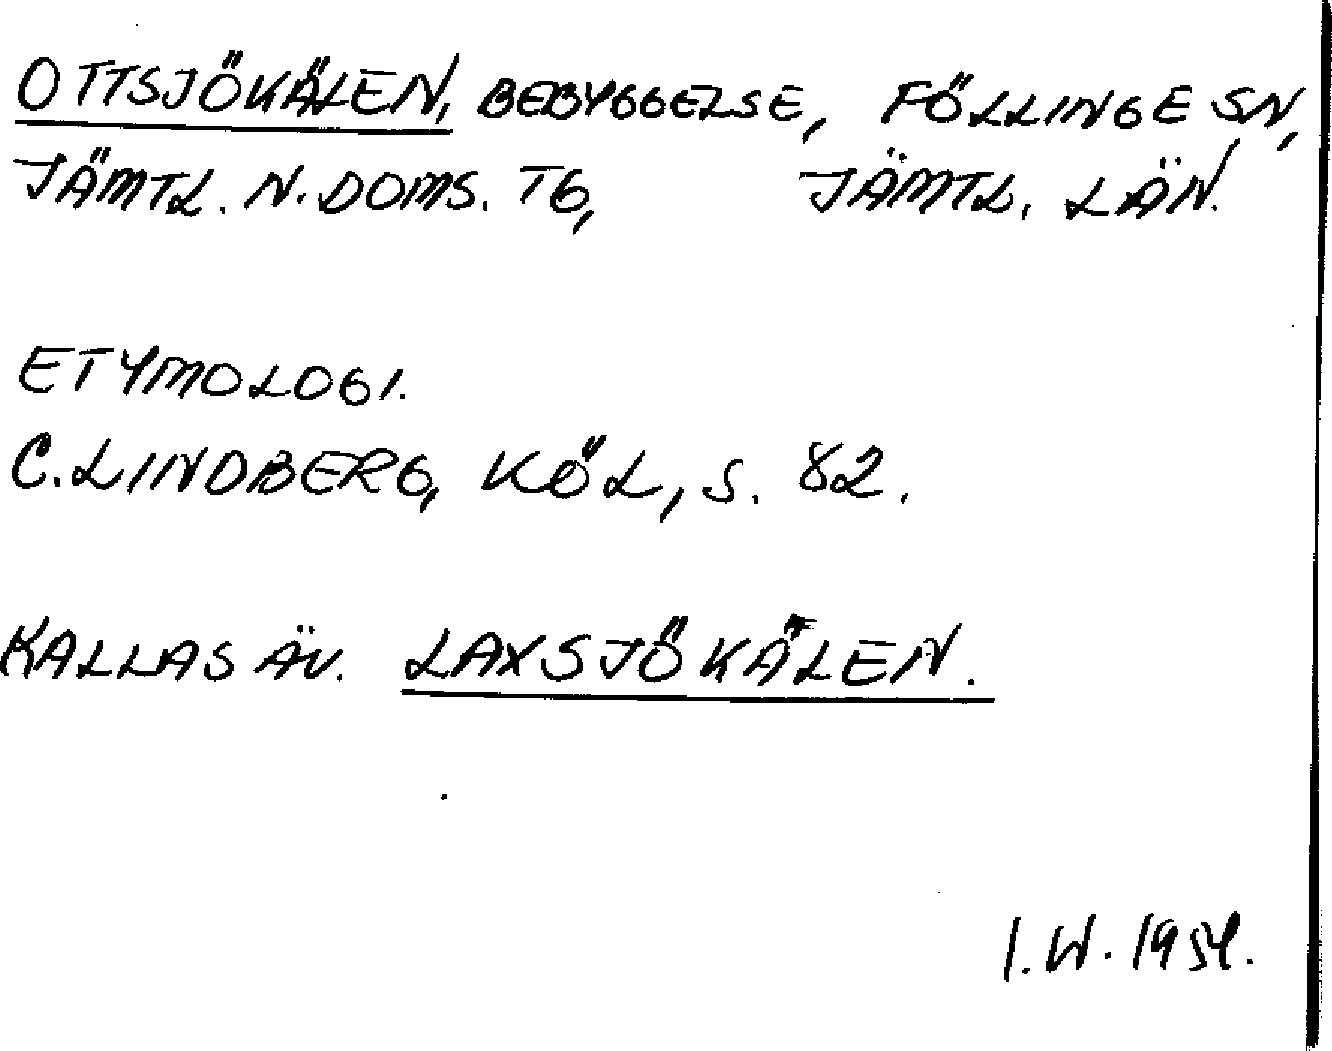 OTTSJÖKÄLEN, BEBYGGELSE, FÖLLINGE SN,
JÄMTL. N. DOMS. TG, JÄMTL. LÄN.
ETYMOLOGI.
C. LINDBERG, KÖL, S. 82.
KALLAS ÄV. LAXSJÖKÄLEN.
I.W. 1954.